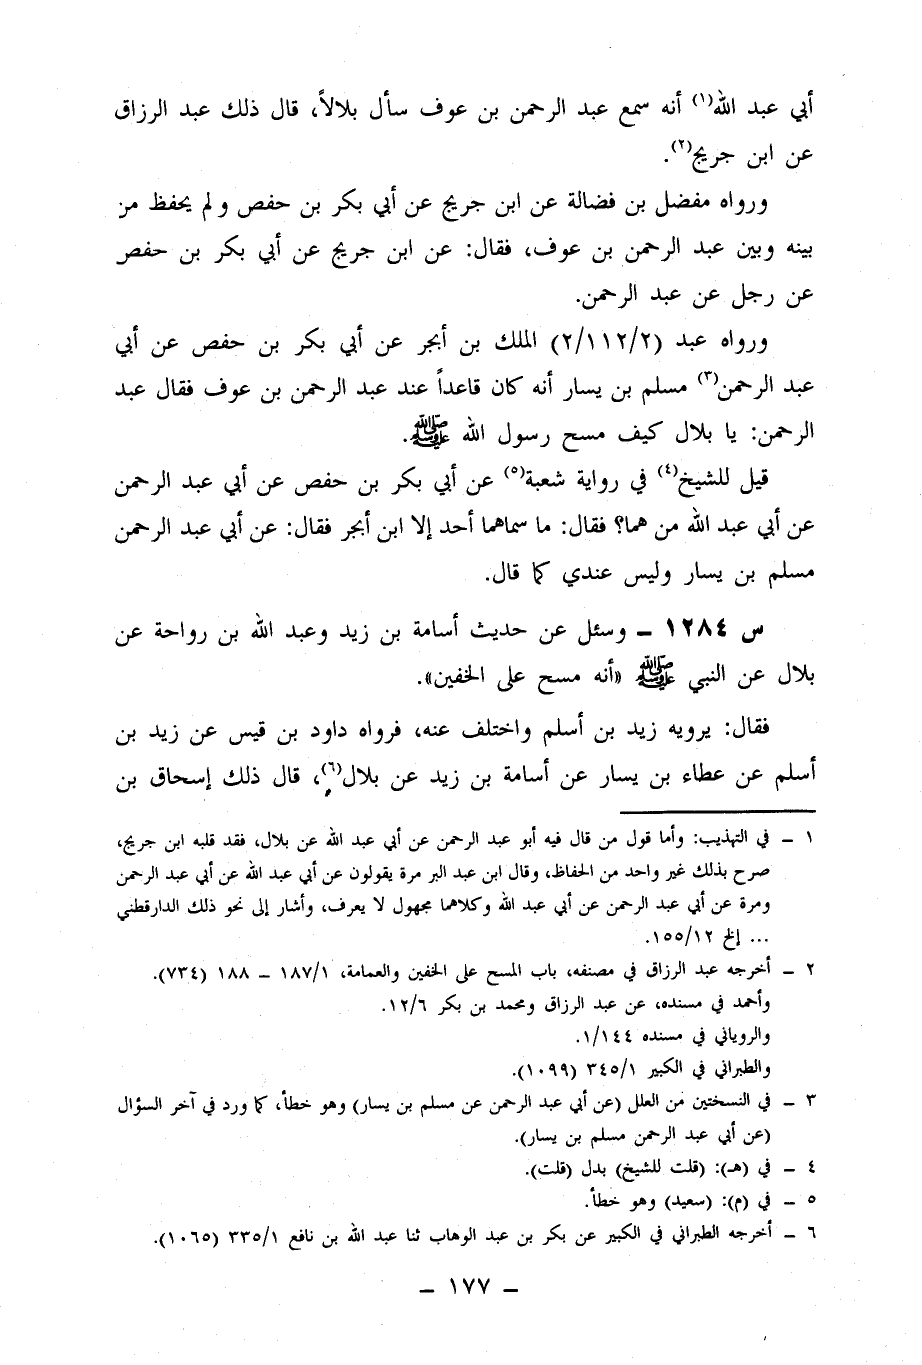 أبي عبد الله(١) أنه سمع عبد الرحمن بن عوف سأل بلالاً، قال ذلك عبد الرزاق
عن ابن جريج(٢).
ورواه مفضل بن فضالة عن ابن جريج عن أبي بكر بن حفص ولم يحفظ من
بينه وبين عبد الرحمن بن عوف، فقال: عن ابن جريج عن أبي بكر بن حفص
عن رجل عن عبد الرحمن.
ورواه عبد (٢/١١٢/٢) الملك بن أبجر عن أبي بكر بن حفص عن أبي
عبد الرحمن(٣) مسلم بن يسار أنه كان قاعداً عند عبد الرحمن بن عوف فقال عبد
الرحمن: يا بلال كيف مسح رسول الله ﷺ.
قيل للشيخ(٤) في رواية شعبة(٥) عن أبي بكر بن حفص عن أبي عبد الرحمن
عن أبي عبد الله من هما؟ فقال: ما سماهما أحد إلا ابن أبجر فقال: عن أبي عبد الرحمن
مسلم بن يسار وليس عندي كما قال.
س ١٢٨٤ ـ وسئل عن حديث أسامة بن زيد وعبد الله بن رواحة عن
بلال عن النبي ﷺ «أنه مسح على الخفين».
فقال: يرويه زيد بن أسلم واختلف عنه، فرواه داود بن قيس عن زيد بن
أسلم عن عطاء بن يسار عن أسامة بن زيد عن بلال(٦)، قال ذلك إسحاق بن
١ ـ في التهذيب: وأما قول من قال فيه أبو عبد الرحمن عن أبي عبد الله عن بلال، فقد قلبه ابن جريج،
صرح بذلك غير واحد من الحفاظ، وقال ابن عبد البر مرة يقولون عن أبي عبد الله عن أبي عبد الرحمن
ومرة عن أبي عبد الرحمن عن أبي عبد الله وكلاهما مجهول لا يعرف، وأشار إلى نحو ذلك الدارقطني
... إلخ ١٥٥/١٢.
٢ ـ أخرجه عبد الرزاق في مصنفه، باب المسح على الخفين والعمامة، ١٨٧/١ ـ ١٨٨ (٧٣٤).
وأحمد في مسنده، عن عبد الرزاق ومحمد بن بكر ١٢/٦.
والروياني في مسنده ١/١٤٤.
والطبراني في الكبير ٣٤٥/١ (١٠٩٩).
٣ ـ في النسختين من العلل (عن أبي عبد الرحمن عن مسلم بن يسار) وهو خطأ، كما ورد في آخر السؤال
(عن أبي عبد الرحمن مسلم بن يسار).
٤ ـ في (هـ): (قلت للشيخ) بدل (قلت).
٥ ـ في (م): (سعيد) وهو خطأ.
٦ ـ أخرجه الطبراني في الكبير عن بكر بن عبد الوهاب ثنا عبد الله بن نافع ٣٣٥/١ (١٠٦٥).
ـ ١٧٧ ـ